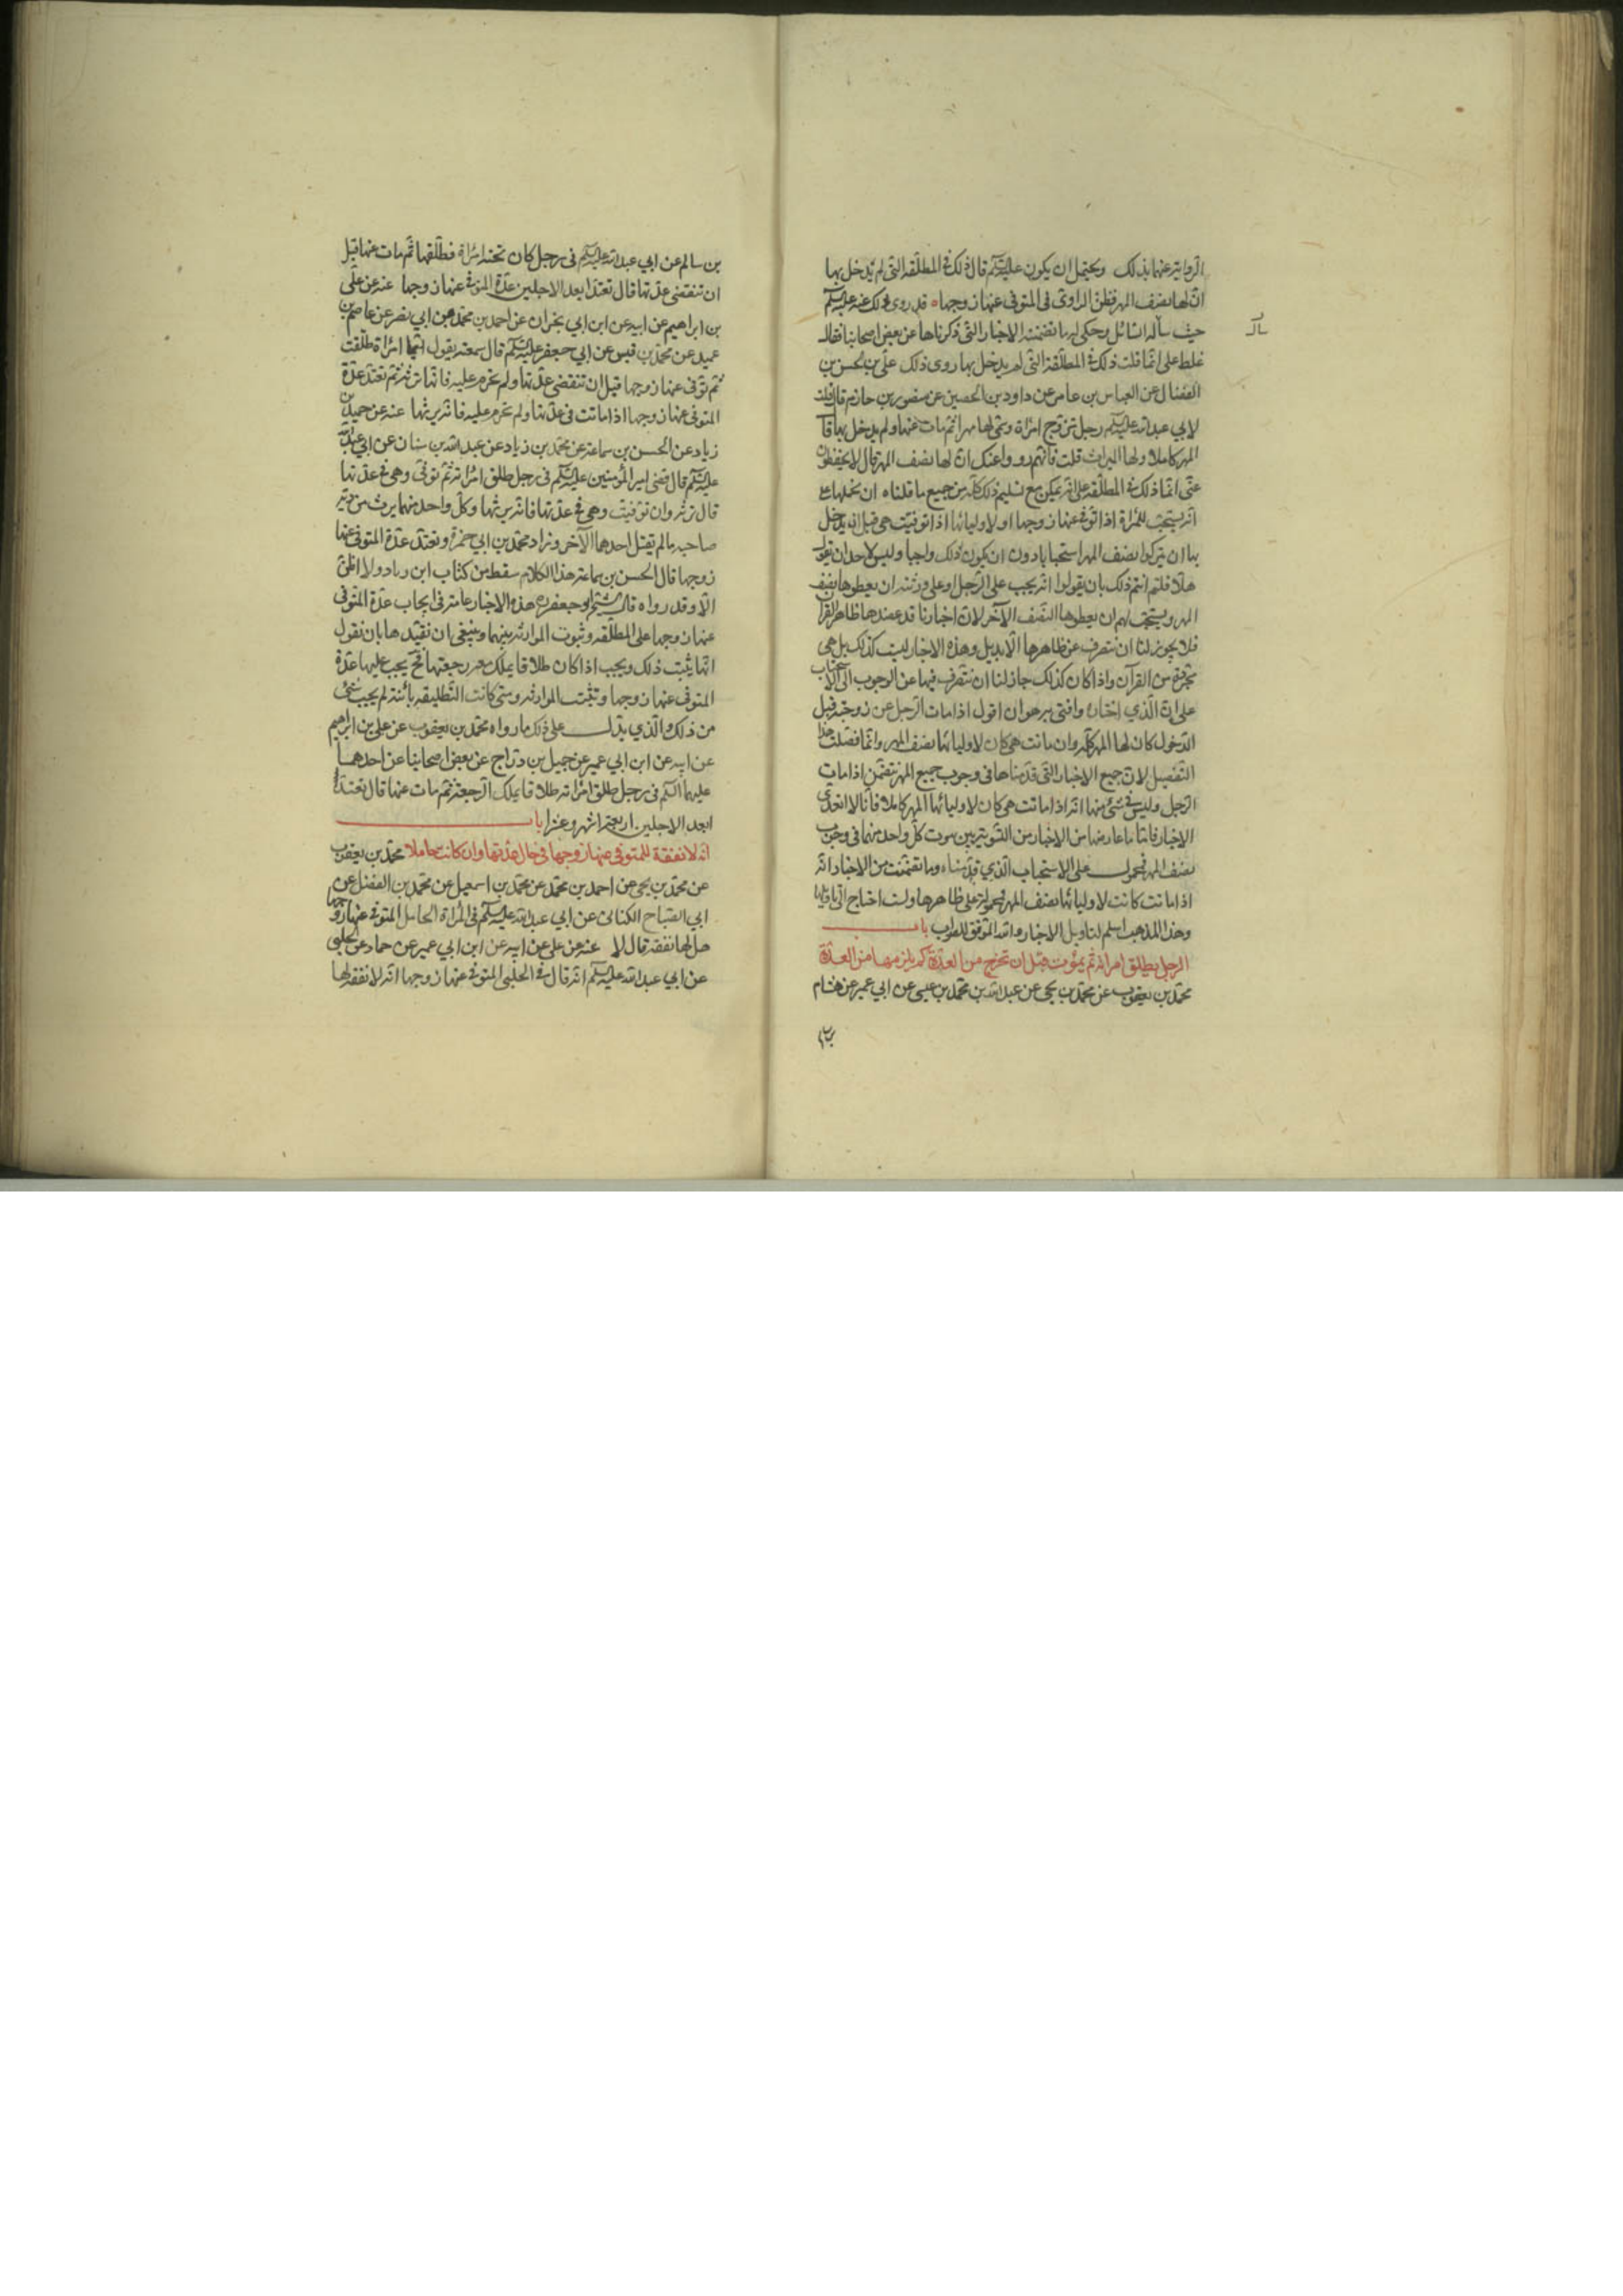 الرواية عنهما بذلك ويحتمل ان يكون عليه السلم قال ذلك في المطلقة التي لم يدخل بها
ان لها نصف المهر فظن الراوي في المتوفى عنها زوجها وقد روى ذلك عنه عليه السلم
حيث سأله السائل وحكى له ما تضمنته الاخبار التي ذكرناها عن بعض اصحابنا فقال
غلط على انما قلت ذلك في المطلقة التي لم يدخل بها روى ذلك علي بن الحسن بن
الفضال عن العباس بن عامر عن داود بن الحصين عن منصور بن حازم قال قلت
لابي عبد الله عليه السلم رجل تزوج امراة وسمى لها مهرا ثم مات عنها ولم يدخل بها قال
المهر كاملا ولها الميراث قلت فانهم رووا عنك ان لها نصف المهر قال لا يحفظون
عني انما ذلك في المطلقة على انه يمكن مع تسليم ذلك كله من جميع ما قلناه ان نحملها على
انه يستحب للمراة اذا توفي عنها زوجها او لاوليائها اذا توفيت هي قبل ان يدخل
بها ان يتركوا نصف المهر استحبابا دون ان يكون ذلك واجبا وليس لاحد ان يقول
هلا قلتم انتم ذلك بان يقولوا انه يجب على الرجل او على ورثته ان يعطوها نصف
المهر ويستحب لهم ان يعطوها النصف الآخر لان اخبارنا قد عضدها ظاهر القرآن
فلا يجوز لنا ان نتصرف عن ظاهرها الا بدليل وهذه الاخبار ليست كذلك بل هي
مجردة من القرآن واذا كان كذلك جاز لنا ان نتصرف فيها عن الوجوب الى الاستحباب
على ان الذي اختاره وافتي به هو ان اقول اذا مات الرجل عن زوجته قبل
الدخول كان لها المهر كله وان ماتت هي كان لاوليائها نصف المهر وانما فصلت هذا
التفصيل لان جميع الاخبار التي قدمناها في وجوب جميع المهر تتضمن اذا مات
الرجل وليس في شئ منها انه اذا ماتت هي كان لاوليائها المهر كاملا فانا لا اتعدى
الاخبار فاما ما عارضها من الاخبار من التسوية بين موت كل واحد منهما في وجوب
نصف المهر فمحمول على الاستحباب الذي قدمناه وما تضمنت من الاخبار انه
اذا ماتت كانت لاوليائها نصف المهر فمحمولة على ظاهرها ولست احتاج الى تاويلها
وهذا المذهب اسلم لتاويل الاخبار والله الموفق للصواب باب
الرجل يطلق امراته ثم يموت قبل ان تخرج من العدة كم يلزمها من العدة
محمد بن يعقوب عن محمد بن يحيى عن عبد الله بن محمد بن عيسى عن ابي عمير عن هشام
بن سالم عن ابي عبد الله عليه السلم في رجل كان تحته امراة فطلقها ثم مات عنها قبل
ان تنقضي عدتها قال تعتد ابعد الاجلين عدة المتوفى عنها زوجها عنه عن علي
بن ابراهيم عن ابيه عن ابن ابي نجران عن احمد بن محمد بن ابي نصر عن عاصم بن
حميد عن محمد بن قيس عن ابي جعفر عليه السلم قال سمعته يقول ايما امراة طلقت
ثم توفى عنها زوجها قبل ان تنقضي عدتها ولم تحرم عليه فانها ترثه ثم تعتد عدة
المتوفى عنها زوجها اذا ماتت في عدتها ولم تحرم عليه فانه يرثها عنه عن حميد بن
زياد عن الحسن بن سماعة عن محمد بن زياد عن عبد الله بن سنان عن ابي عبد الله
عليه السلم قال قضى امير المؤمنين عليه السلم في رجل طلق امراته ثم توفى وهي في عدتها
قال ترثه وان توفيت وهي في عدتها فانه يرثها وكل واحد منهما يرث من دية
صاحبه ما لم يقتل احدهما الآخر وزاد محمد بن ابي حمزة وتعتد عدة المتوفى عنها
زوجها قال الحسن بن سماعة هذا الكلام سقط من كتاب ابن زياد ولا اظن
الا وقد رواه قال الشيخ ابو جعفر ره هذه الاخبار عامة في ايجاب عدة المتوفى
عنها زوجها على المطلقة وثبوت الموارثة بينهما وينبغي ان نقيدها بان نقول
انما يثبت ذلك ويجب اذا كان طلاقا يملك معه رجعتها فح يجب عليها عدة
المتوفى عنها زوجها وتثبت الموارثة ومتى كانت التطليقة بائنة لم يجب شئ
من ذلك والذي يدل على ذلك ما رواه محمد بن يعقوب عن علي بن ابراهيم
عن ابيه عن ابن ابي عمير عن جميل بن دراج عن بعض اصحابنا عن احدهما
عليهما السلم في رجل طلق امراته طلاقا يملك الرجعة ثم مات عنها قال تعتد
ابعد الاجلين اربعة اشهر وعشرا باب
انه لا نفقة للمتوفى عنها زوجها في حال عدتها وان كانت حاملا محمد بن يعقوب
عن محمد بن يحيى عن احمد بن محمد عن محمد بن اسمعيل عن محمد بن الفضل عن
ابي الصباح الكناني عن ابي عبد الله عليه السلم في المراة الحامل المتوفى عنها زوجها
هل لها نفقة قال لا عنه عن علي عن ابيه عن ابن ابي عمير عن حماد عن الحلبي
عن ابي عبد الله عليه السلم انه قال في الحبلى المتوفى عنها زوجها انه لا نفقة لها